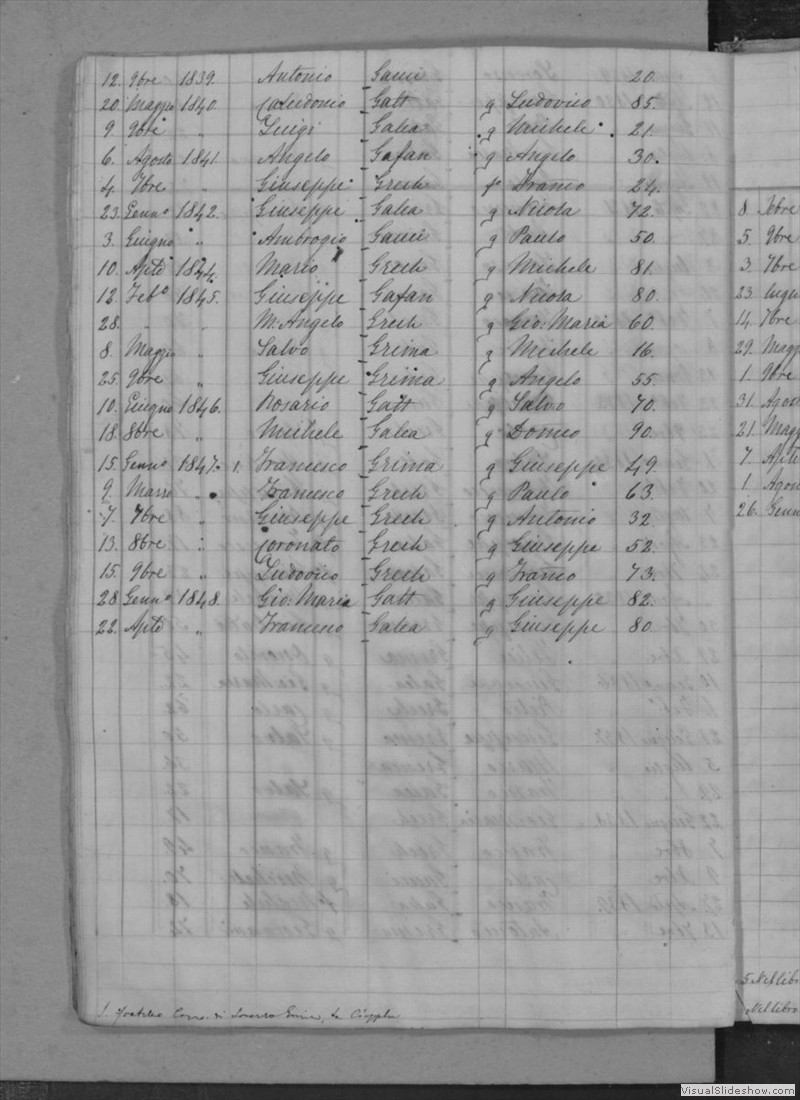 12. 9bre 1839. Antonio Gauci 20.
20. Maggio 1840. Calcedonio Gatt q Ludovico 85.
9. 9bre " Luigi Galea q Michele 21.
6. Agosto 1841. Angelo Gafan q Angelo 30.
4. 7bre " Giuseppe Grech fo Franco 24.
23. Genno 1842. Giuseppe Galea q Nicola 72.
3. Giugno " Ambrogio Gauci q Paulo 50.
10. Aple 1844. Mario Grech q Michele 81.
12. Febo 1845. Giuseppe Gafan q Nicola 80.
28. " " M. Angelo Grech q Gio: Maria 60.
8. Maggio " Salvo Grima q Michele 16.
25. 9bre " Giuseppe Grima q Angelo 55.
10. Giugno 1846. Rosario Gatt q Salvo 70.
18. 8bre " Michele Galea q Domco 90.
15. Genno 1847. 1. Francesco Grima q Giuseppe 49.
9. Marzo " Francesco Grech q Paulo 63.
7. 7bre " Giuseppe Grech q Antonio 32.
13. 8bre " Coronato Grech q Giuseppe 52.
15. 9bre " Ludovico Grech q Franco 73.
28. Genno 1848. Gio: Maria Gatt q Giuseppe 82.
22. Aple " Francesco Galea q Giuseppe 80.
8. Xbre
5. 9bre
3. 7bre
23. Lugli
14. 7bre
29. Magg
1. 9bre
31. Agos
21. Magg
7. Aple
1. Agos
26. Genn
5. Nel libr
Nel libro
1. di
VisualSlideshow.com